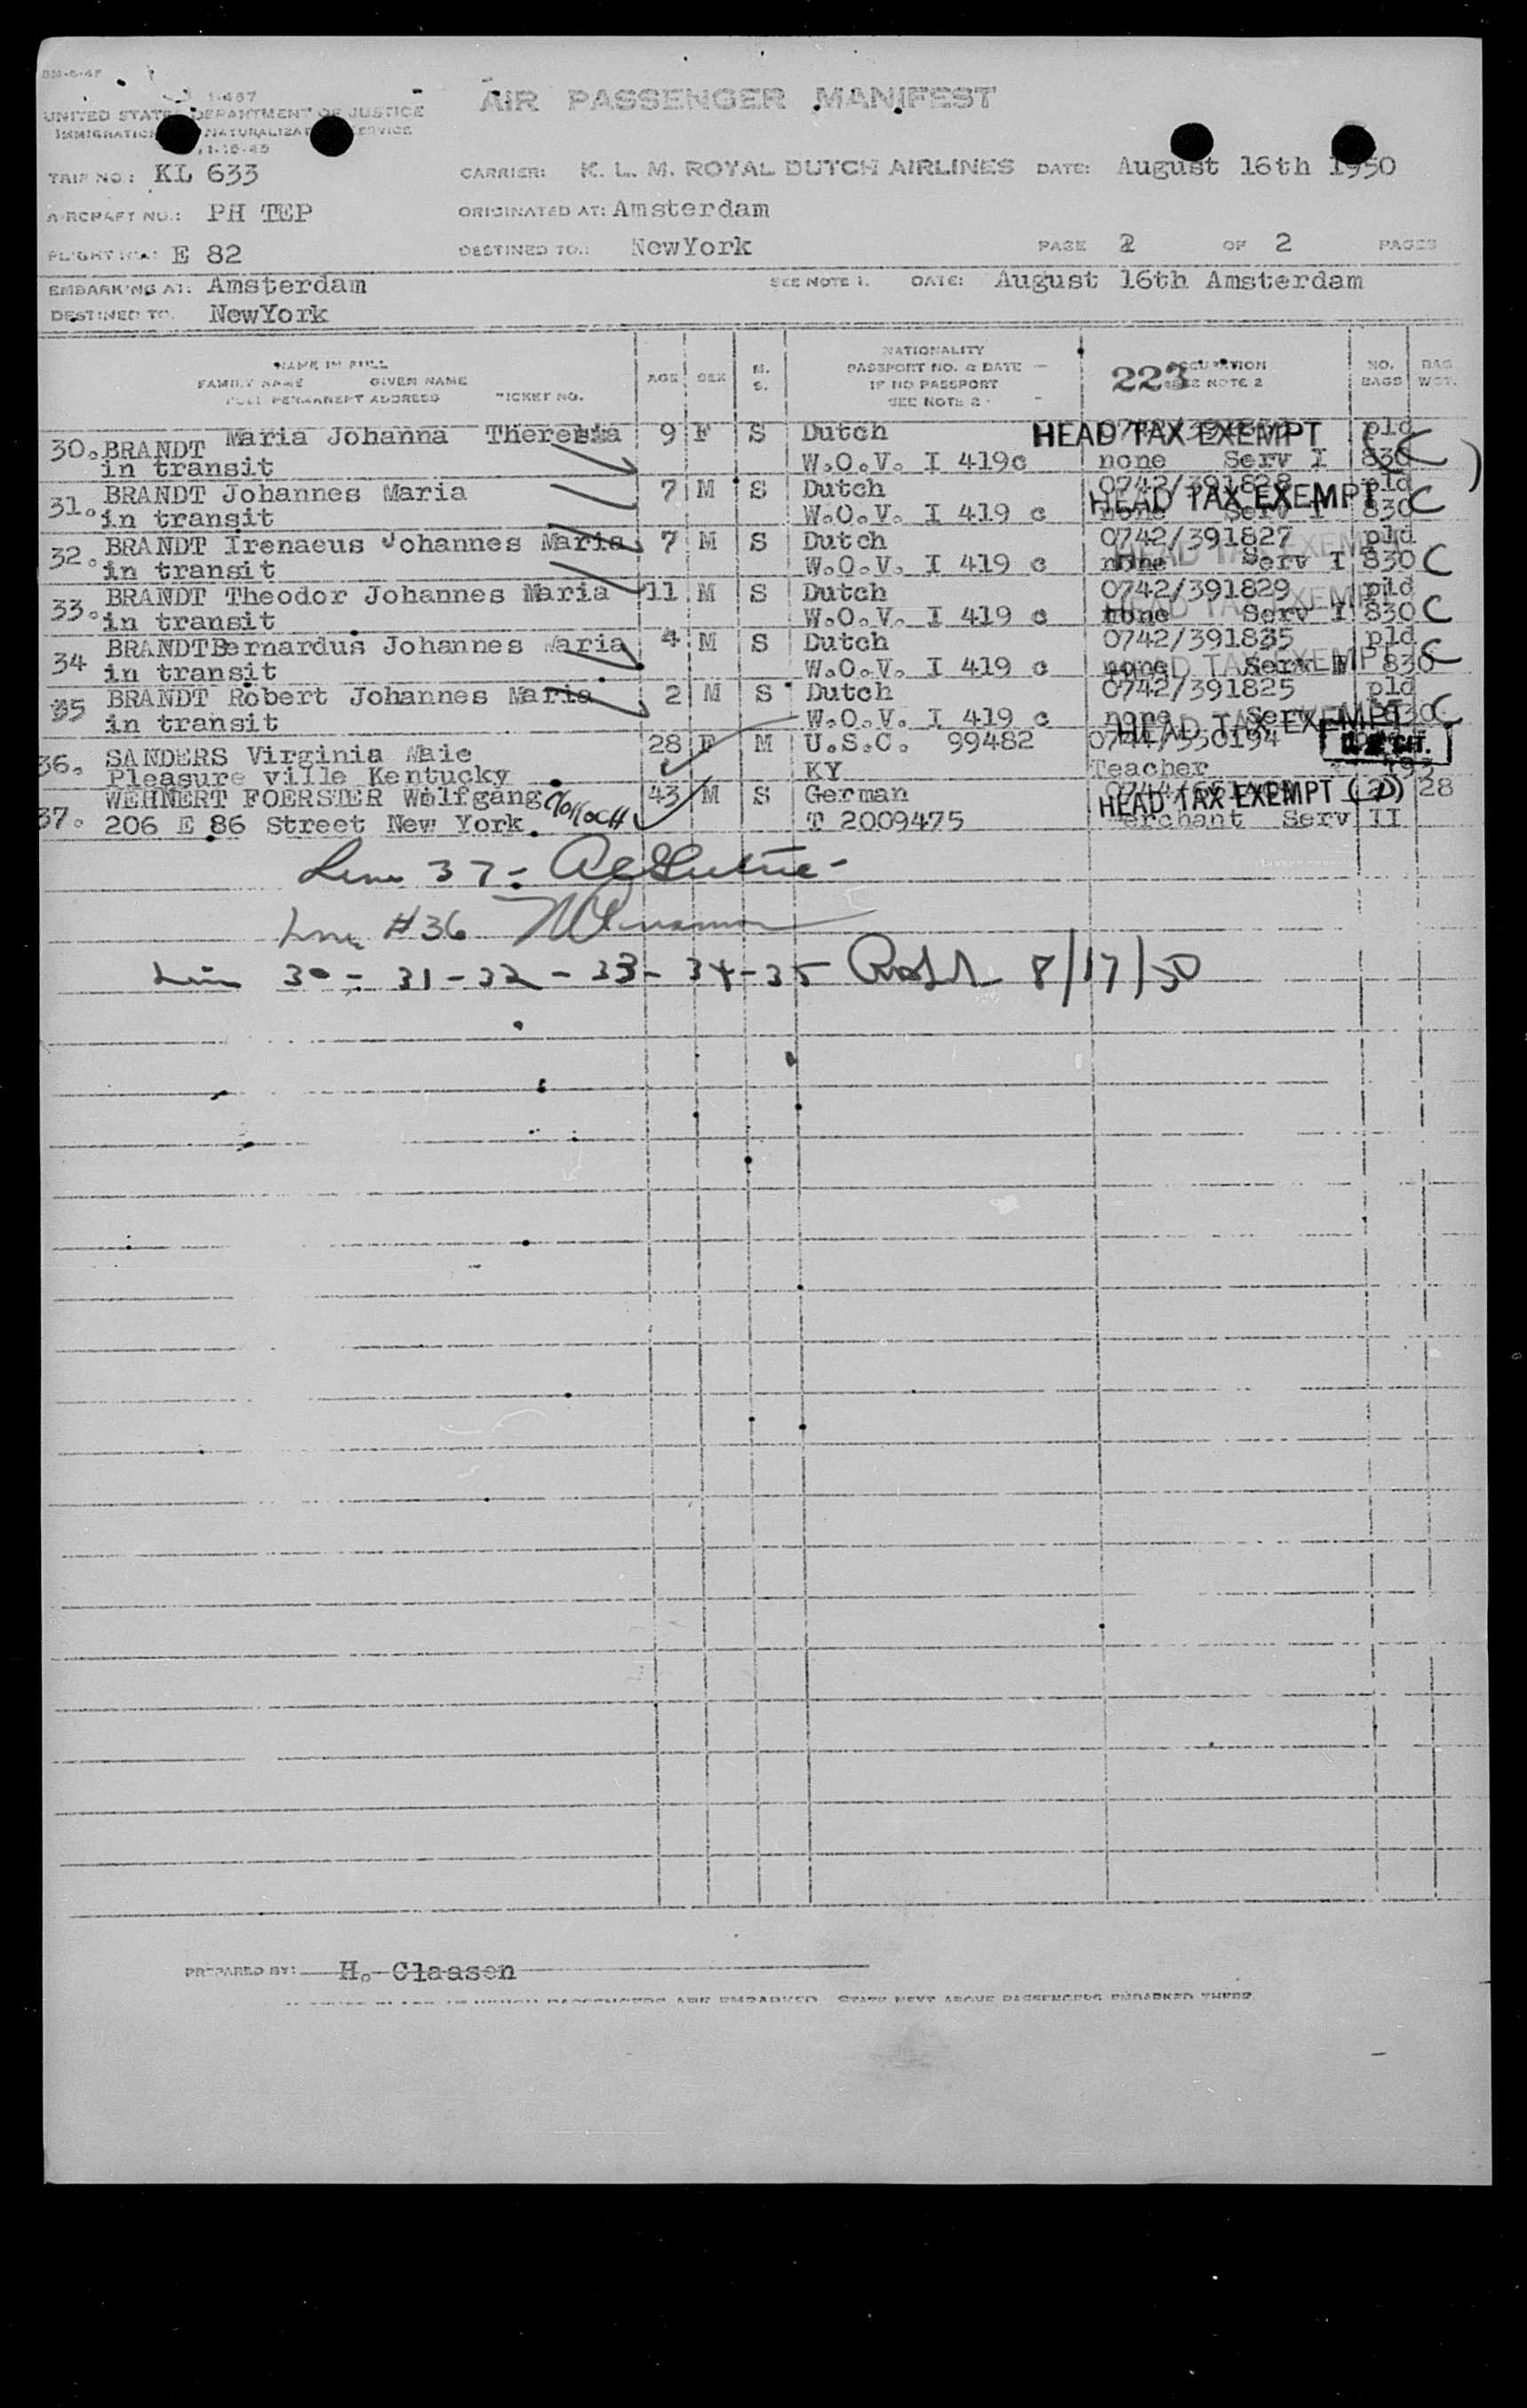 BM-6-47
I-467
UNITED STATES DEPARTMENT OF JUSTICE
IMMIGRATION NATURALIZATION SERVICE
AIR PASSENGER MANIFEST
TRIP NO.: KL 633 CARRIER: K. L. M. ROYAL DUTCH AIRLINES DATE: August 16th 1950
AIRCRAFT NO.: PH TEP ORIGINATED AT: Amsterdam
FLIGHT NO.: E 82 DESTINED TO.: NewYork PAGE 2 OF 2 PAGES
EMBARKING AT: Amsterdam SEE NOTE 1. DATE: August 16th Amsterdam
DESTINED TO. NewYork
NAME IN FULL
FAMILY NAME GIVEN NAME
FULL PERMANENT ADDRESS TICKET NO.
AGE SEX M. S.
NATIONALITY
PASSPORT NO. & DATE
IF NO PASSPORT
SEE NOTE 2
223 OCCUPATION
SEE NOTE 2
NO. BAGS BAG WGT.
30. BRANDT Maria Johanna Theresia 9 F S Dutch HEAD TAX EXEMPT pld
in transit W.O.V. I 419c none Serv I 830 C
31. BRANDT Johannes Maria 7 M S Dutch 0742/391828 pld
in transit W.O.V. I 419 c none Serv I 830 HEAD TAX EXEMPT C
32. BRANDT Irenaeus Johannes Maria 7 M S Dutch 0742/391827 pld
in transit W.O.V. I 419 c none Serv I 830 HEAD TAX EXEMPT C
33. BRANDT Theodor Johannes Maria 11 M S Dutch 0742/391829 pld
in transit W.O.V. I 419 c none Serv I 830 HEAD TAX EXEMPT C
34 BRANDT Bernardus Johannes Maria 4 M S Dutch 0742/391835 pld
in transit W.O.V. I 419 c none Serv 830 HEAD TAX EXEMPT C
35 BRANDT Robert Johannes Maria 2 M S Dutch 0742/391825 pld
in transit W.O.V. I 419 c none Serv I 830 HEAD TAX EXEMPT C
36. SANDERS Virginia Maie 28 F M U.S.C. 99482 U.S. CIT.
Pleasure ville Kentucky KY Teacher
37. WEHNERT FOERSTER Wolfgang 43 M S German HEAD TAX EXEMPT (D) 28
206 E 86 Street New York. T 2009475 Merchant Serv II
Line 37 -
Line #36
Line 30 - 31 - 32 - 33 - 34 - 35 8/17/50
PREPARED BY: H. Claasen
PASSENGERS ARE EMBARKED STATE NEXT ABOVE PASSENGERS EMBARKED THERE